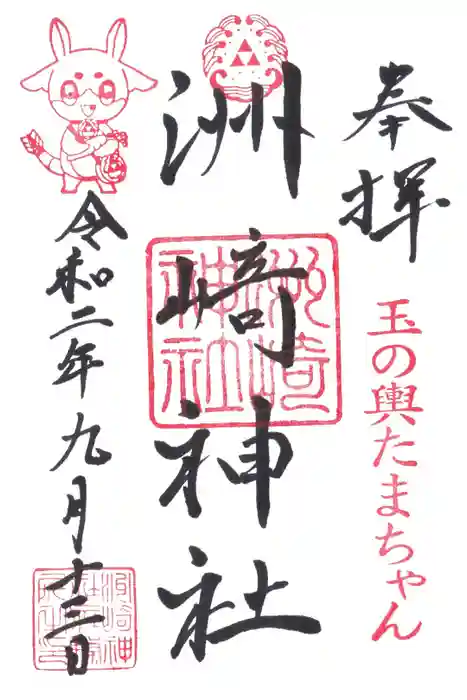 奉拝
玉の輿たまちゃん
洲﨑神社
洲崎神社
令和二年九月十三日